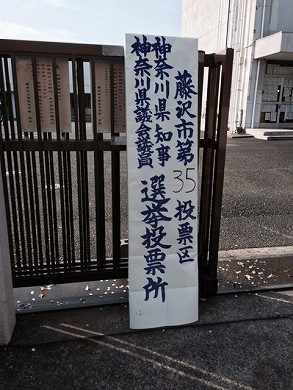 藤沢市第35投票区
神奈川県知事
神奈川県議会議員
選挙投票所